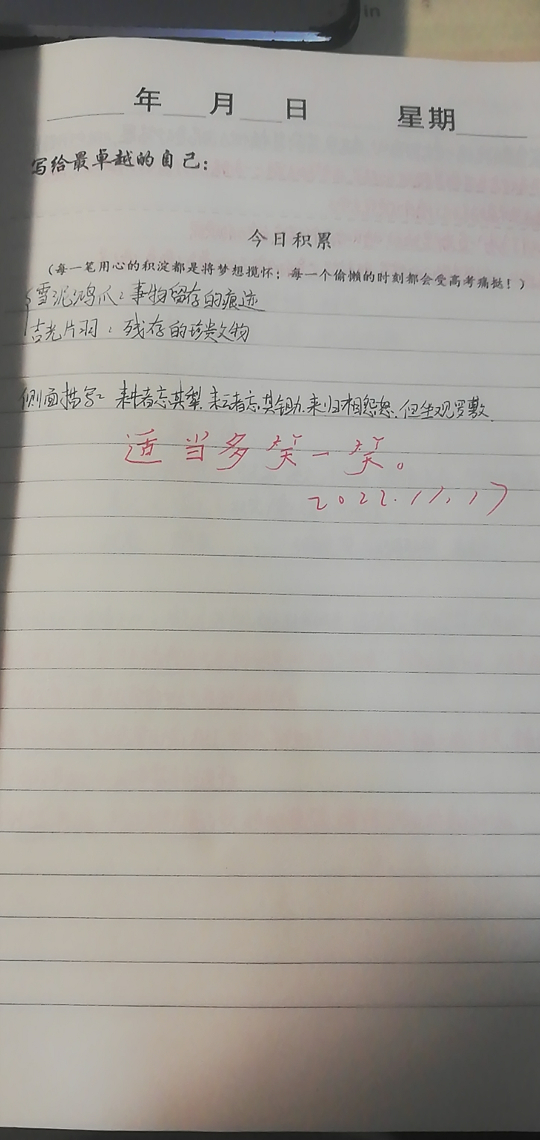 ____年___月___日 星期____
写给最卓越的自己：
今日积累
（每一笔用心的积淀都是将梦想揽怀；每一个偷懒的时刻都会受高考痛挞！）
雪泥鸿爪：事物留存的痕迹
吉光片羽：残存的珍贵文物
侧面描写：耕者忘其犁，耘者忘其锄，来归相怨怒，但坐观罗敷
适当多笑一笑。
2022.11.17